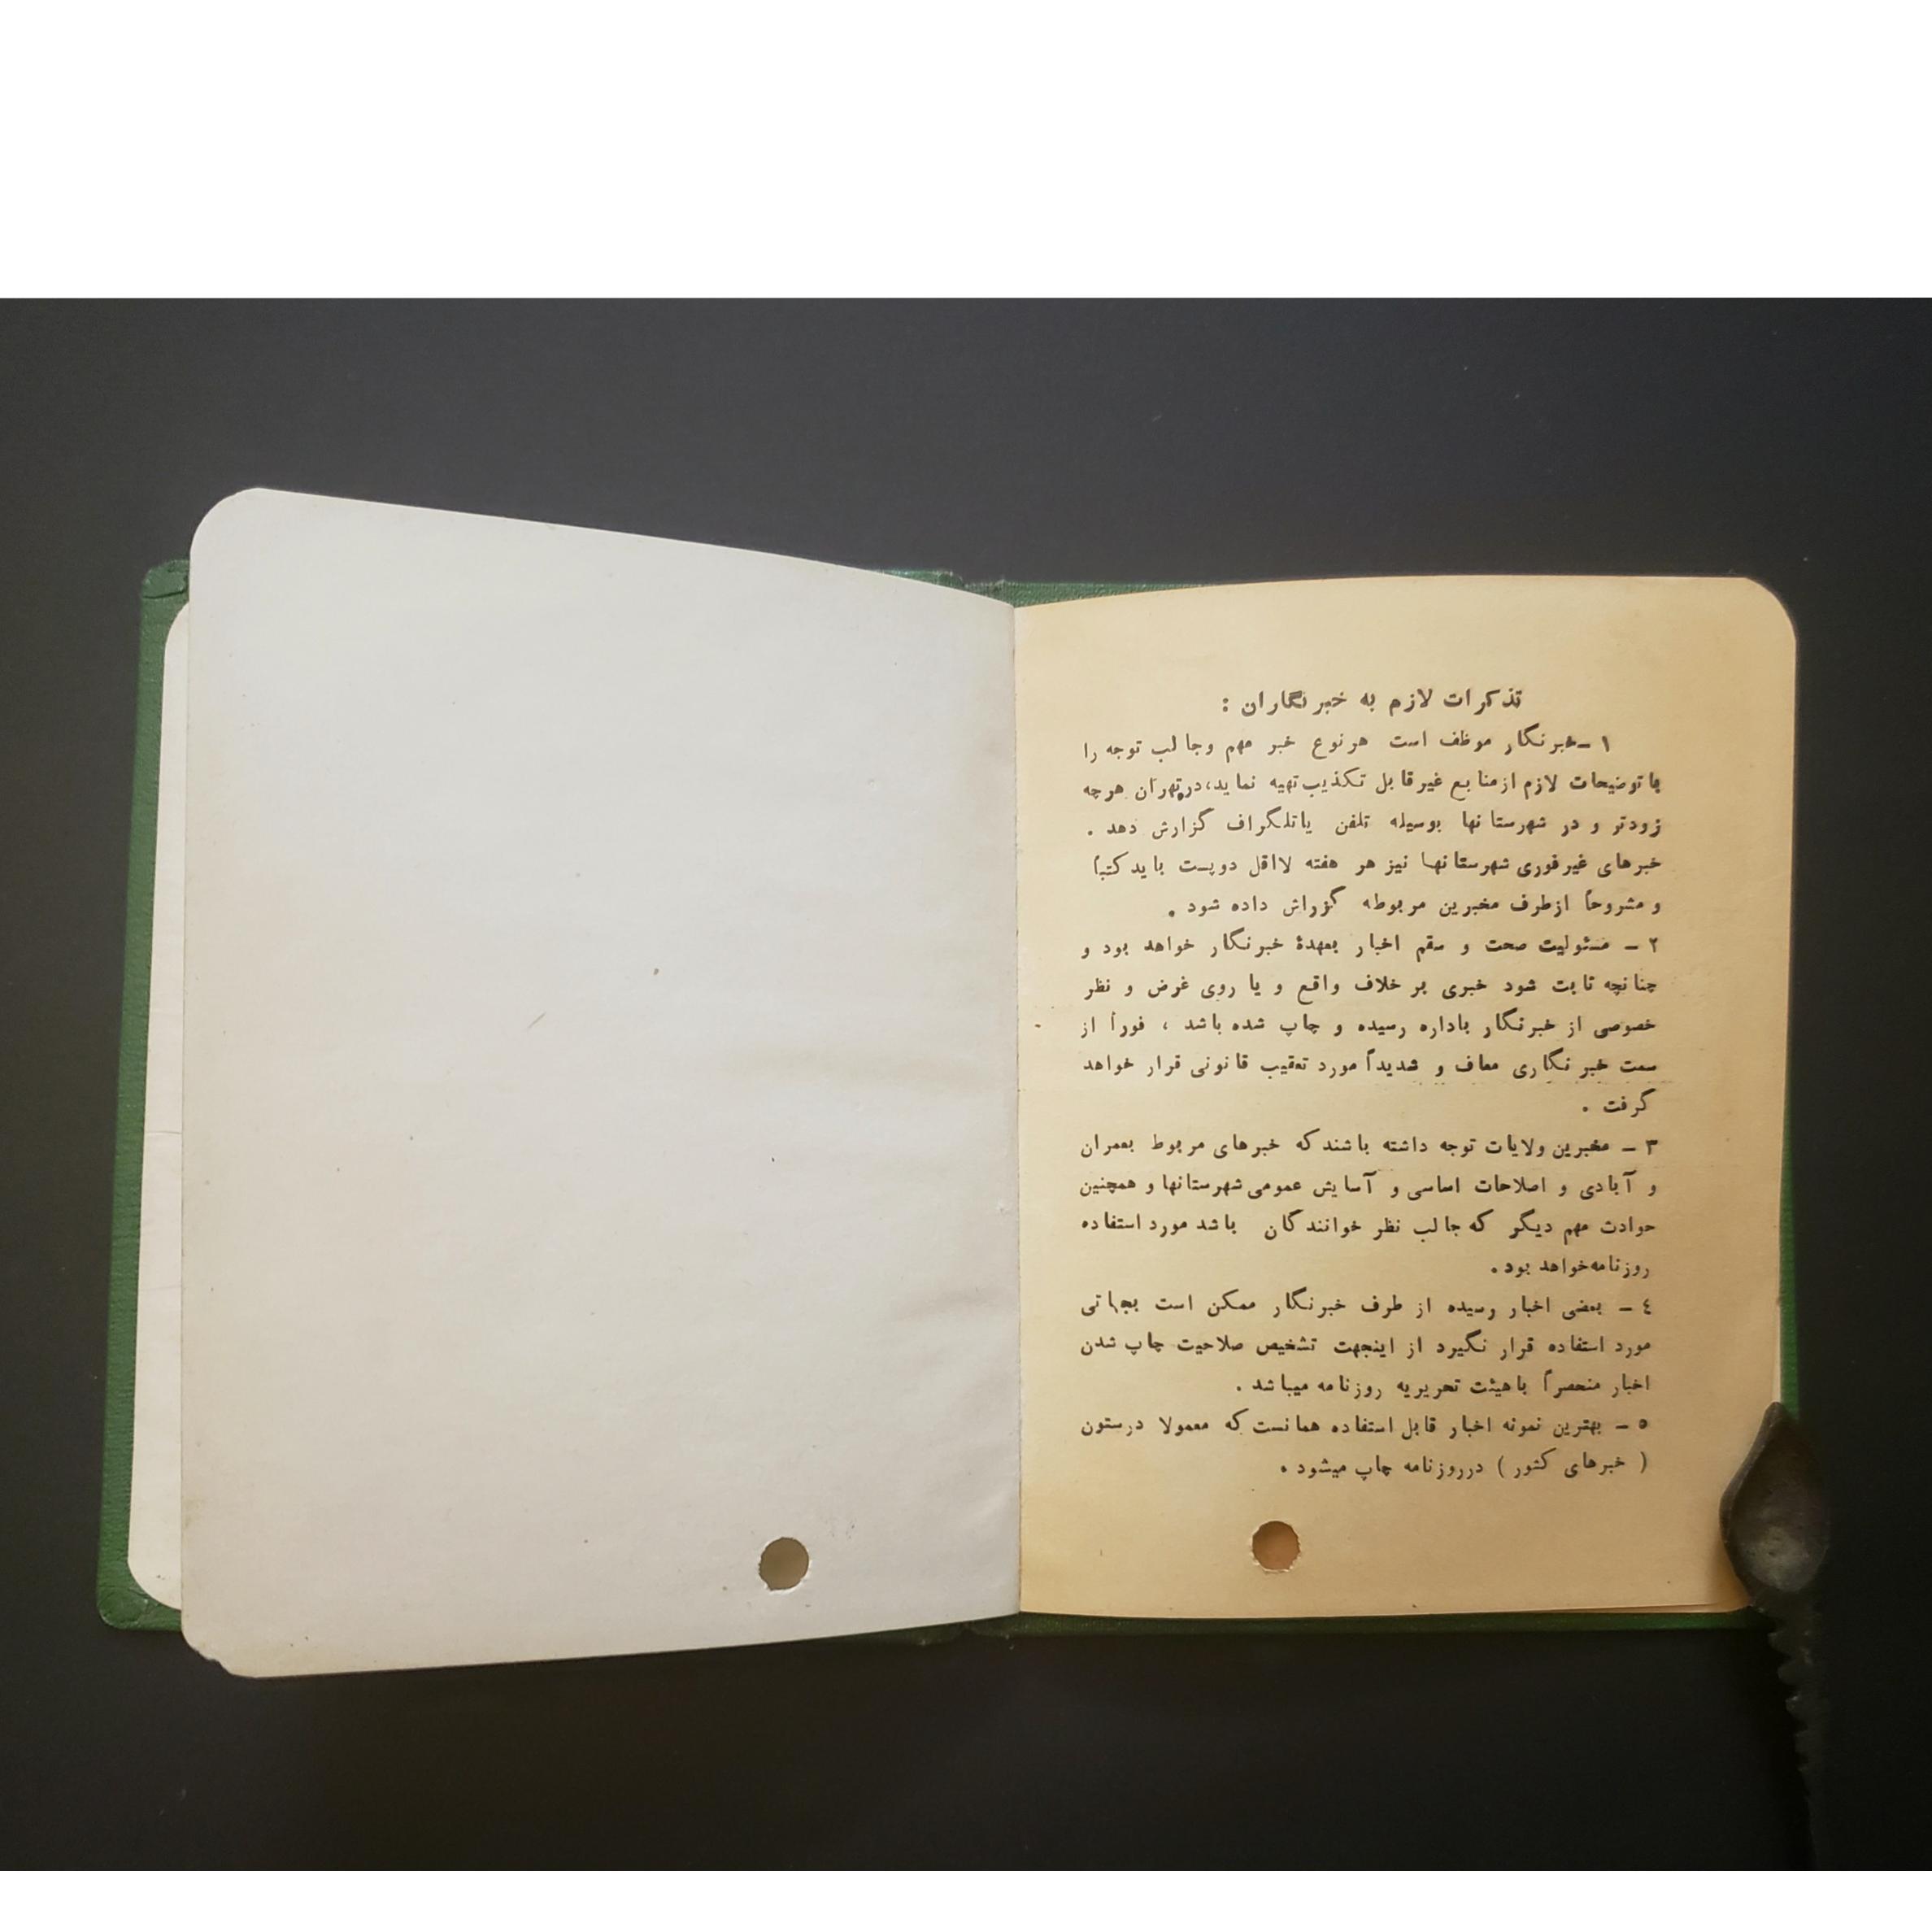 تذکرات لازم به خبرنگاران :
۱ – خبرنگار موظف است هرنوع خبر مهم وجالب توجه را
با توضیحات لازم ازمنابع غیرقابل تکذیب تهیه نماید، در تهران هرچه
زودتر و در شهرستانها بوسیله تلفن یاتلگراف گزارش دهد .
خبرهای غیرفوری شهرستانها نیز هر هفته لااقل دوپست باید کتباً
و مشروحاً ازطرف مخبرین مربوطه گزراش داده شود .
۲ – مسئولیت صحت و سقم اخبار بعهدۀ خبرنگار خواهد بود و
چنانچه ثابت شود خبری بر خلاف واقع و یا روی غرض و نظر
خصوصی از خبرنگار باداره رسیده و چاپ شده باشد ، فوراً از
سمت خبرنگاری معاف و شدیداً مورد تعقیب قانونی قرار خواهد
گرفت .
۳ – مخبرین ولایات توجه داشته باشندکه خبرهای مربوط بعمران
و آبادی و اصلاحات اساسی و آسایش عمومی شهرستانها و همچنین
حوادث مهم دیگر که جالب نظر خوانندگان باشد مورد استفاده
روزنامه خواهد بود .
٤ – بعضی اخبار رسیده از طرف خبرنگار ممکن است بجهاتی
مورد استفاده قرار نگیرد از اینجهت تشخیص صلاحیت چاپ شدن
اخبار منحصراً باهیئت تحریریه روزنامه میباشد .
۵ – بهترین نمونه اخبار قابل استفاده همانست که معمولا درستون
( خبرهای کشور ) درروزنامه چاپ میشود .